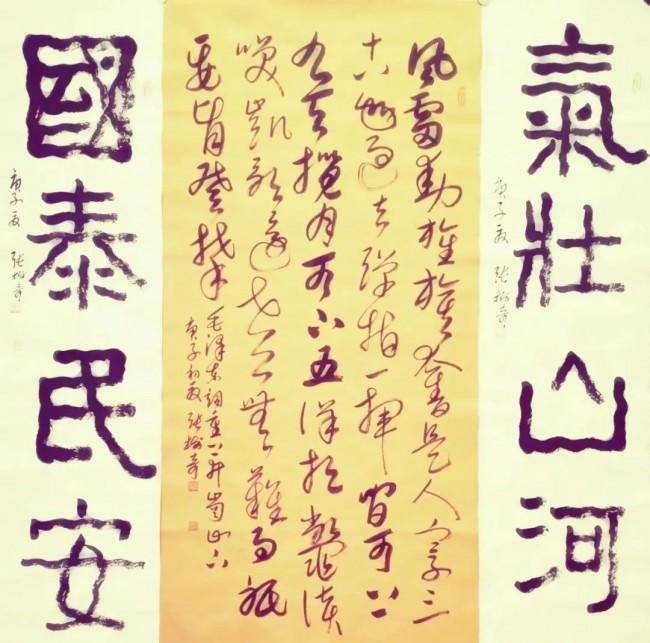 氣壯山河
庚子夏 張
風雷動旌旗奮是人寰三
十八年過去彈指一揮間可上
九天攬月可下五洋捉鱉談
笑凱歌還世上無難事只
要肯登攀
毛澤東詞重上井崗山下
庚子初夏 張
國泰民安
庚子夏 張